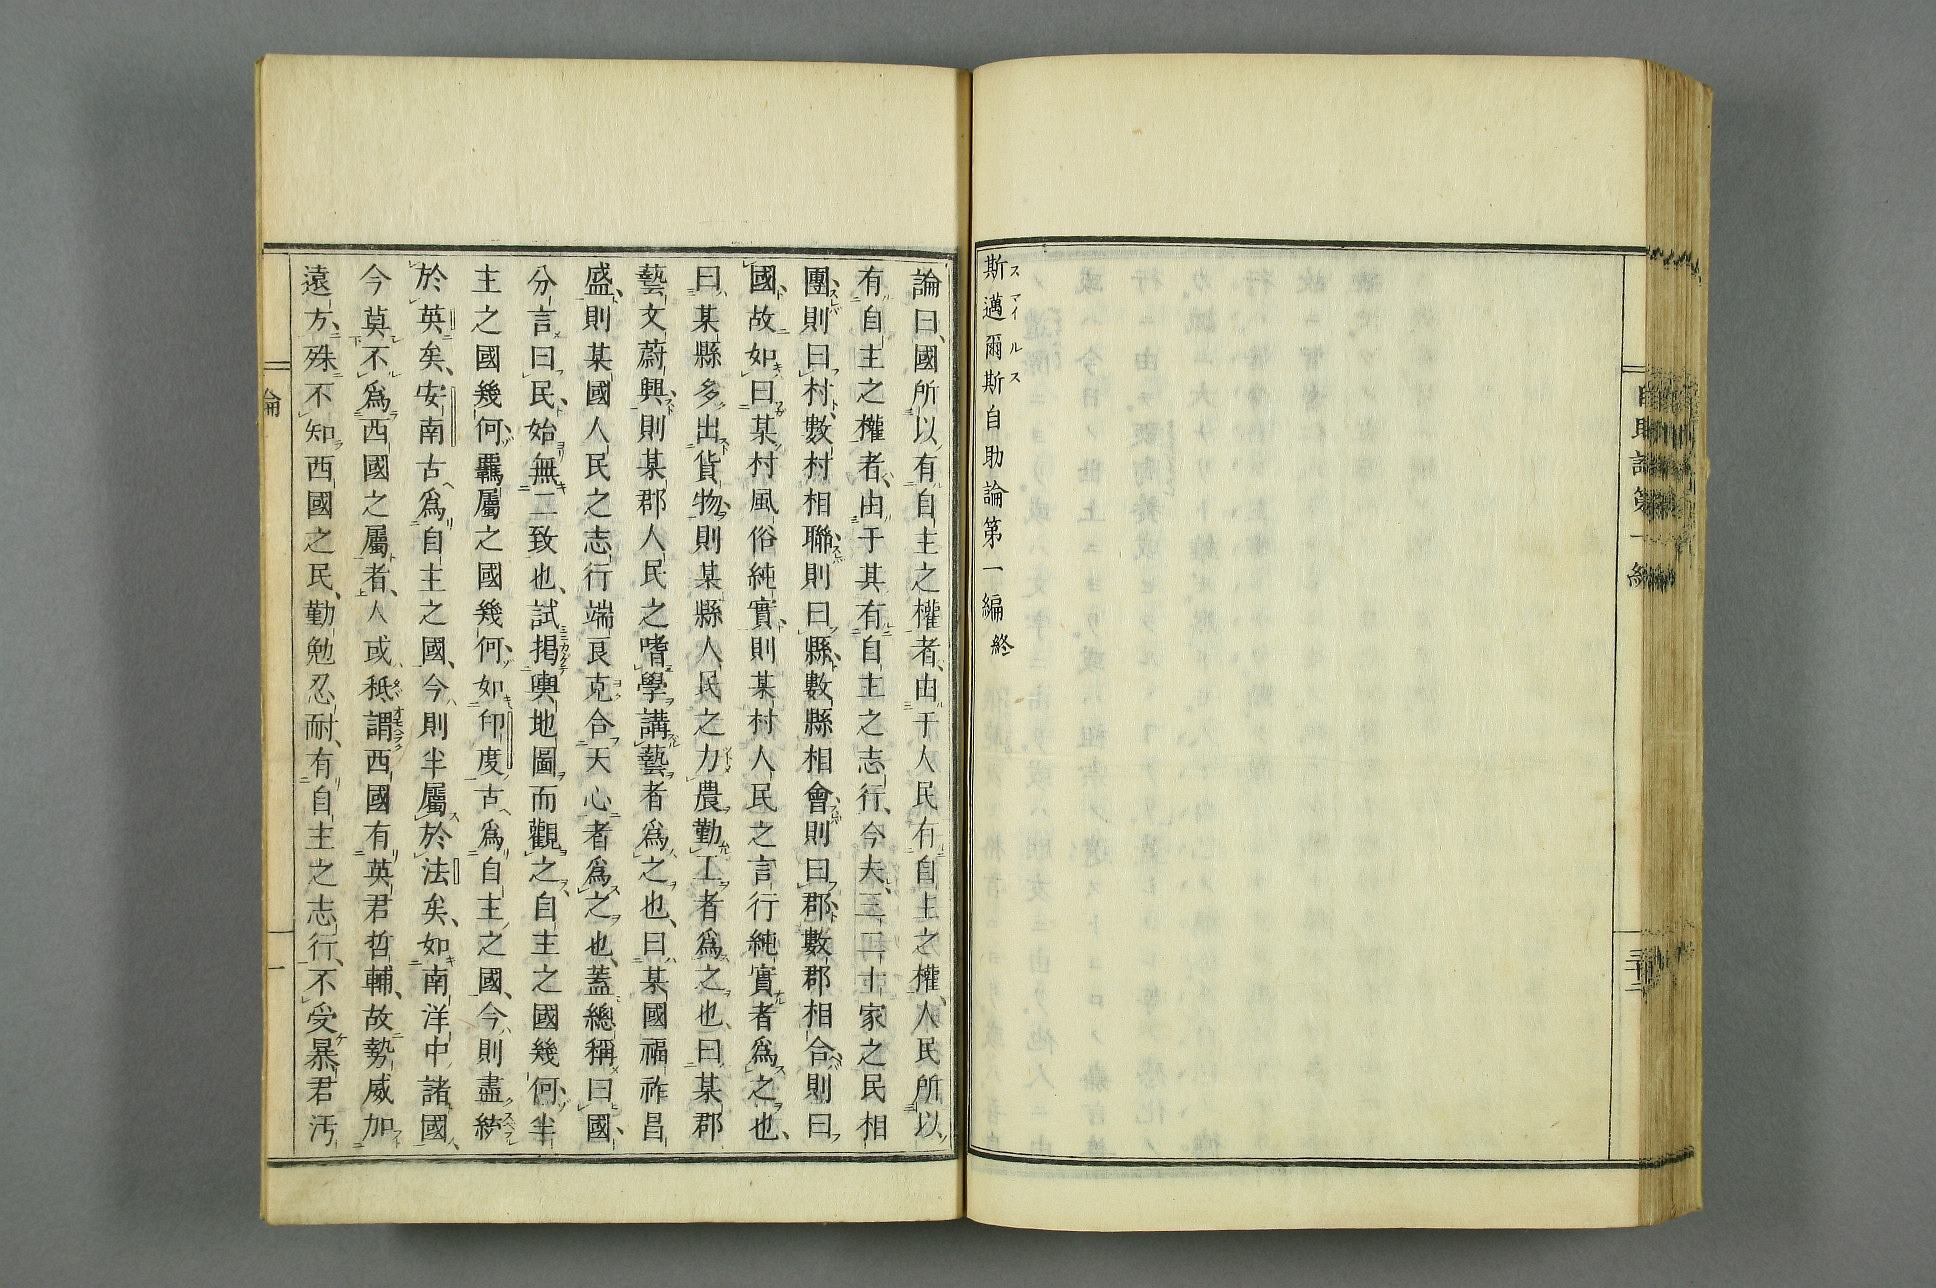 斯邁爾斯自助論第一編終
論曰、國所以有自主之權者、由于人民有自主之權、人民所以
有自主之權者、由于其有自主之志行、今夫二三十家之民相
團、則曰村、數村相聯、則曰縣、數縣相會、則曰郡、數郡相合、則曰
國、故如曰某村風俗純實、則某村人民之言行純實者爲之也、
曰某縣多出貨物、則某縣人民之力農勤工者爲之也、曰某郡
藝文蔚興、則某郡人民之嗜學講藝者爲之也、曰某國福祚昌
盛、則某國人民之志行端良克合天心者爲之也、蓋總稱曰國、
分言曰民、始無二致也、試揭輿地圖而觀之、自主之國幾何、半
主之國幾何、羈屬之國幾何、如印度古爲自主之國、今則盡統
於英矣、安南古爲自主之國、今則半屬於法矣、如南洋中諸國、
今莫不爲西國之屬者、人或秪謂西國有英君哲輔、故勢威加
遠方、殊不知西國之民、勤勉忍耐、有自主之志行、不受暴君汚
論
一